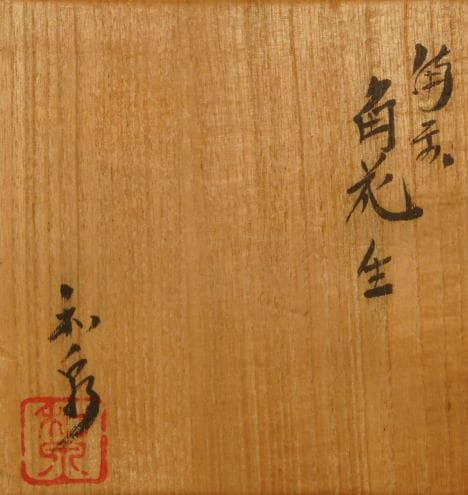 備前
角花生
和